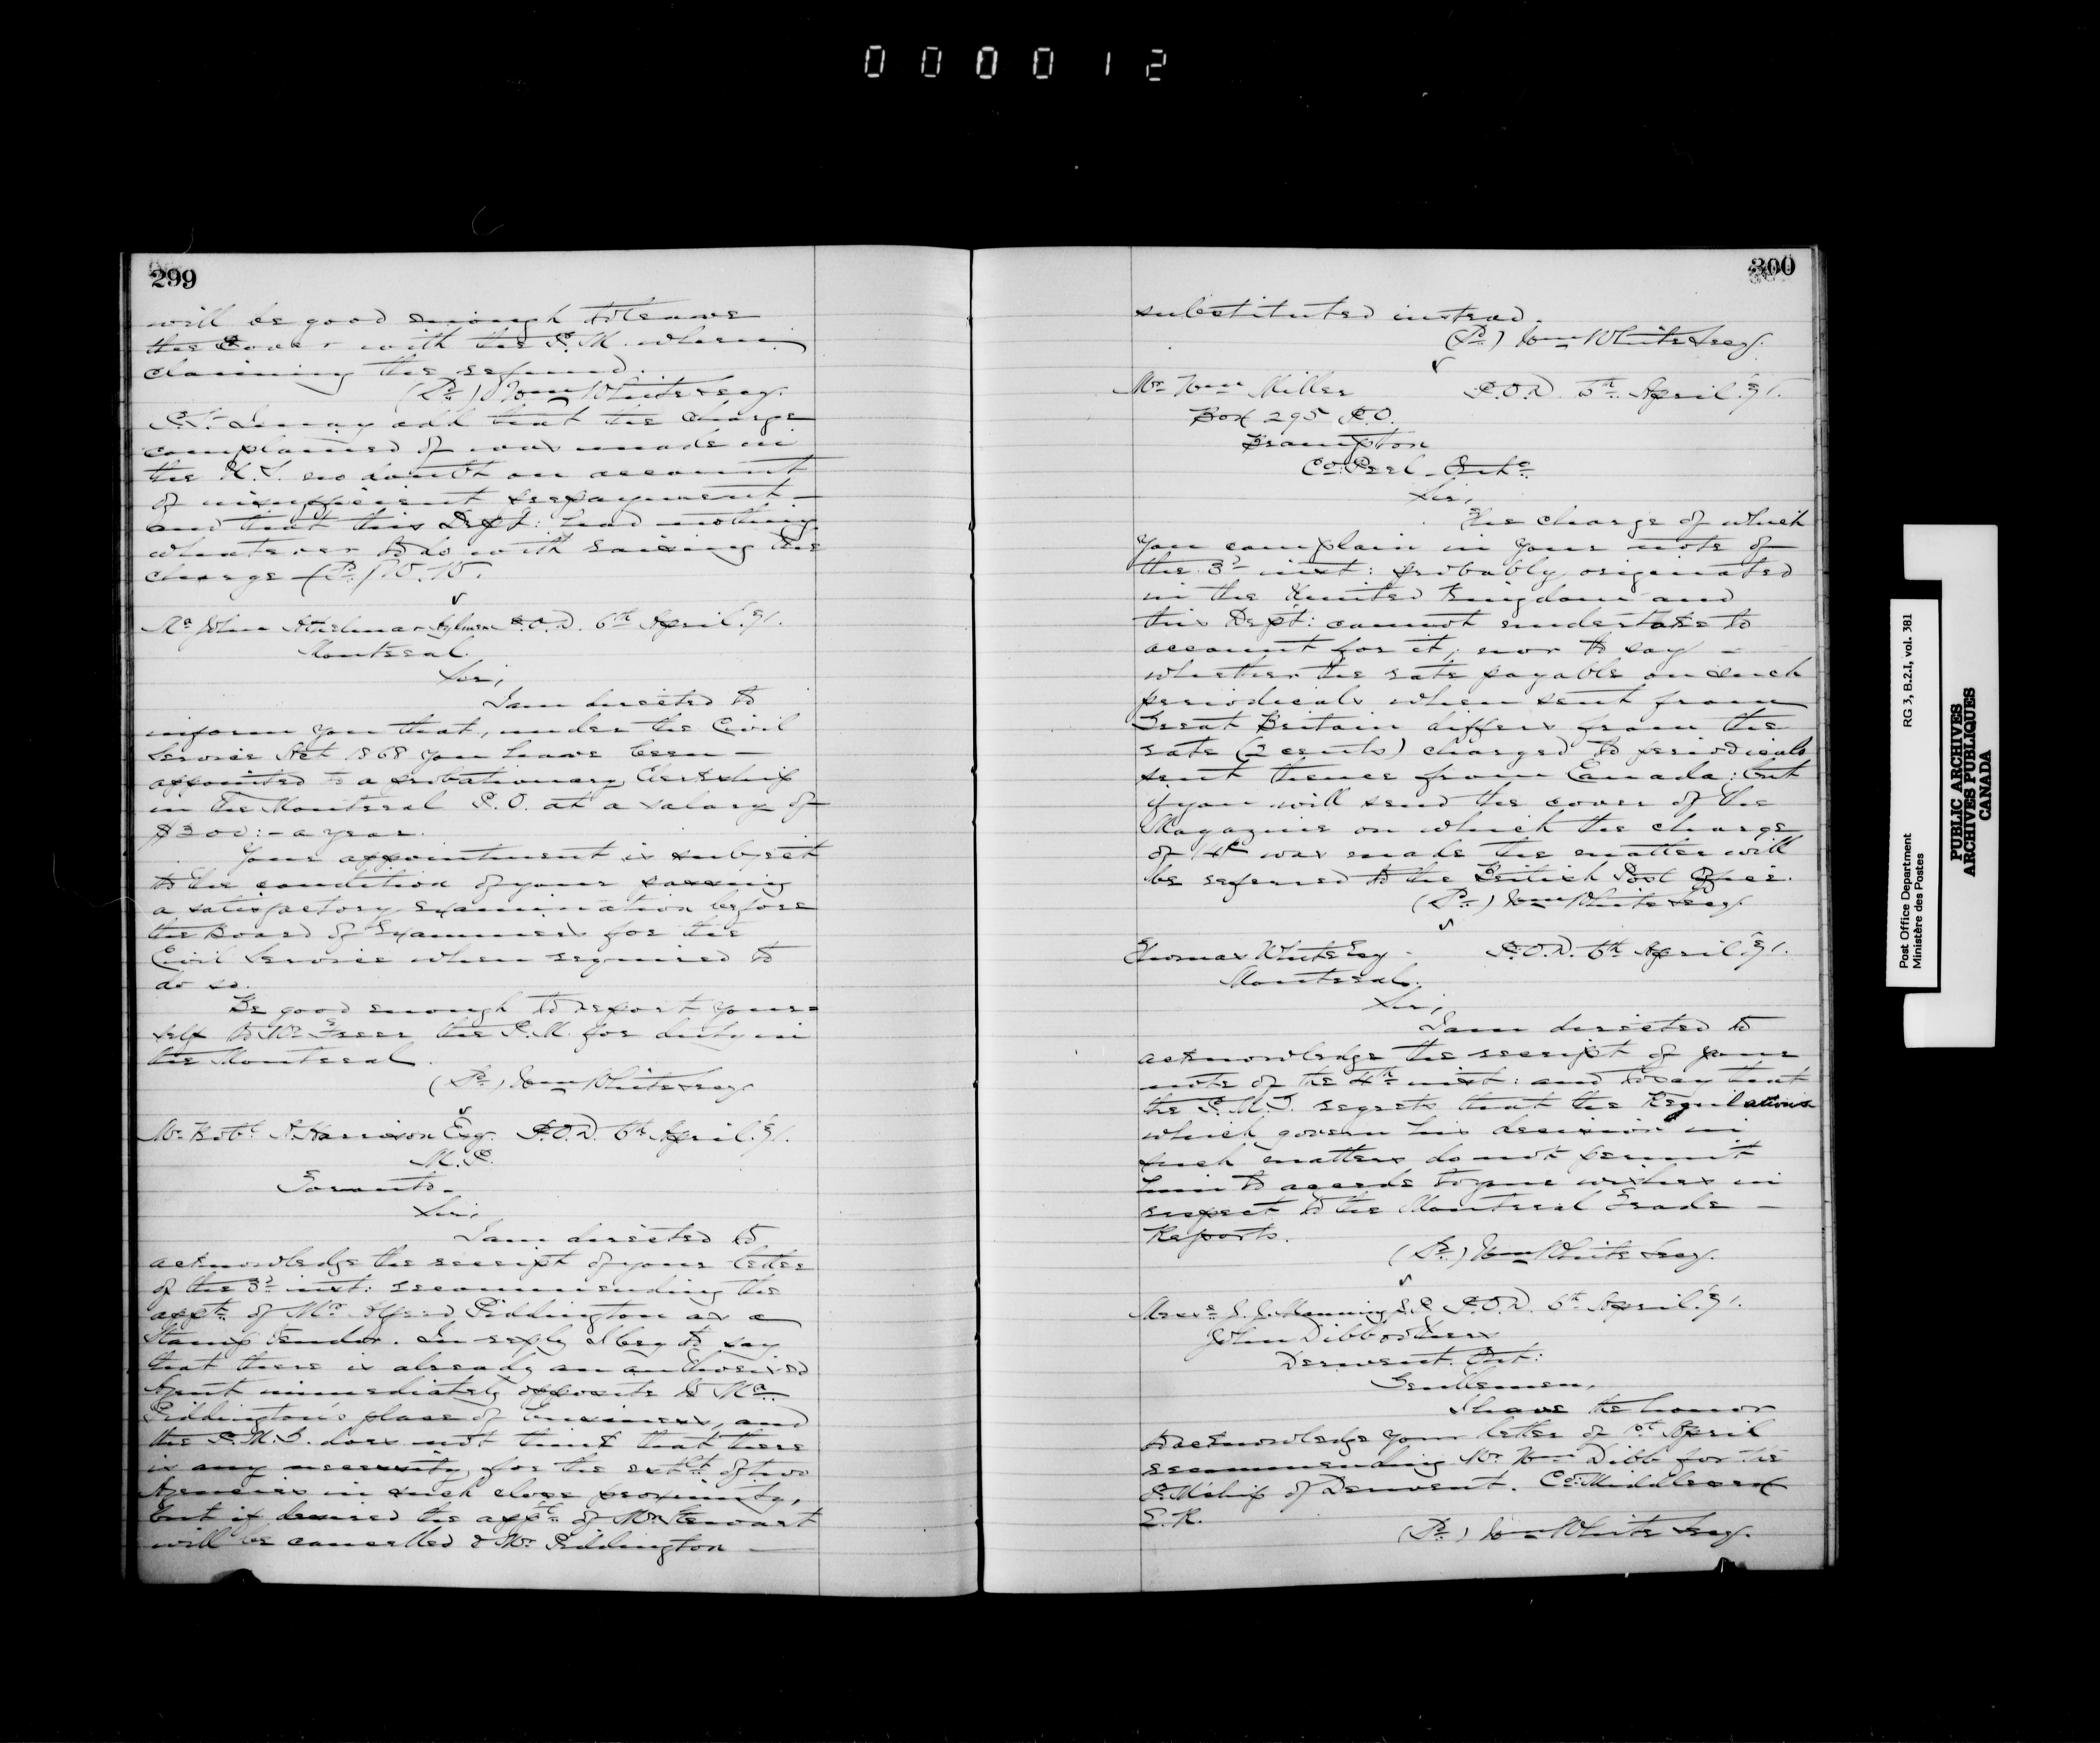 000012
299
will be good enough to leave
the Cover with the P.M. when
claiming the refund.
(Sd.) Wm White Secy.
P.S. I may add that the charge
complained of was made in
the U.S. no doubt on account
of insufficient prepayment —
and that this Dept: had nothing
whatever to do with raising the
charge — (Sd.) W. W.
Mr John Aylmer P.O.D. 6th April '71.
Montreal.
Sir,
I am directed to
inform you that, under the Civil
Service Act 1868 you have been —
appointed to a probationary Clerkship
in the Montreal P.O. at a salary of
$300:- a year.
Your appointment is subject
to the condition of your passing
a satisfactory examination before
the Board of Examiners for the
Civil Service when required to
do so.
Be good enough to report your=
self to Mr Freer the P.M. for duty in
the Montreal
(Sd.) Wm White Secy.
Mr Robt. A. Harrison Esq. P.O.D. 6th April '71.
M.P.
Toronto —
Sir,
I am directed to
acknowledge the receipt of your letter
of the 3d inst: recommending the
appt. of Mr Alfred Piddington as a
Stamp Vendor. In reply I beg to say
that there is already an authorized
Agent immediately opposite to Mr
Piddington's place of business, and
the P.M.G. does not think that there
is any necessity for the extce of two
Agencies in such close proximity,
but if desired the appt. of Mr Stewart
will be cancelled & Mr Piddington —
300
substituted instead.
(Sd.) Wm White Secy.
Mr Wm Miller P.O.D. 6th April '71.
Box 295 P.O.
Brampton
Co. Peel — Onto
Sir,
The charge of which
you complain in your note of
the 3d inst: probably originated
in the United Kingdom and
this Dept: cannot undertake to
account for it; nor to say —
whether the rate payable on such
periodicals when sent from
Great Britain differs from the
rate (2 cents) charged to periodicals
sent thence from Canada: but
if you will send the cover of the
Magazine on which the charge
of 14c was made the matter will
be referred to the British Post Office.
(Sd.) Wm White Secy.
Thomas White Esq — P.O.D. 6th April '71.
Montreal.
Sir,
I am directed to
acknowledge the receipt of your
note of the 4th inst: and to say that
the P.M.G. regrets that the Regulations
which govern his decision in
such matters do not permit
him to accede to your wishes in
respect to the Montreal Trade —
Reports.
(Sd.) Wm White Secy.
Messrs J. J. Manning J.P. P.O.D. 6th April '71.
John Dibb & others
Derwent. Ont:
Gentlemen,
I have the honor
to acknowledge your letter of 1st April
recommending Mr Wm Dibb for the
P.M'ship of Derwent. Co. Middlesex
E.R.
(Sd.) Wm White Secy.
Post Office Department
Ministère des Postes
RG 3, B.2.I, vol. 381
PUBLIC ARCHIVES
ARCHIVES PUBLIQUES
CANADA